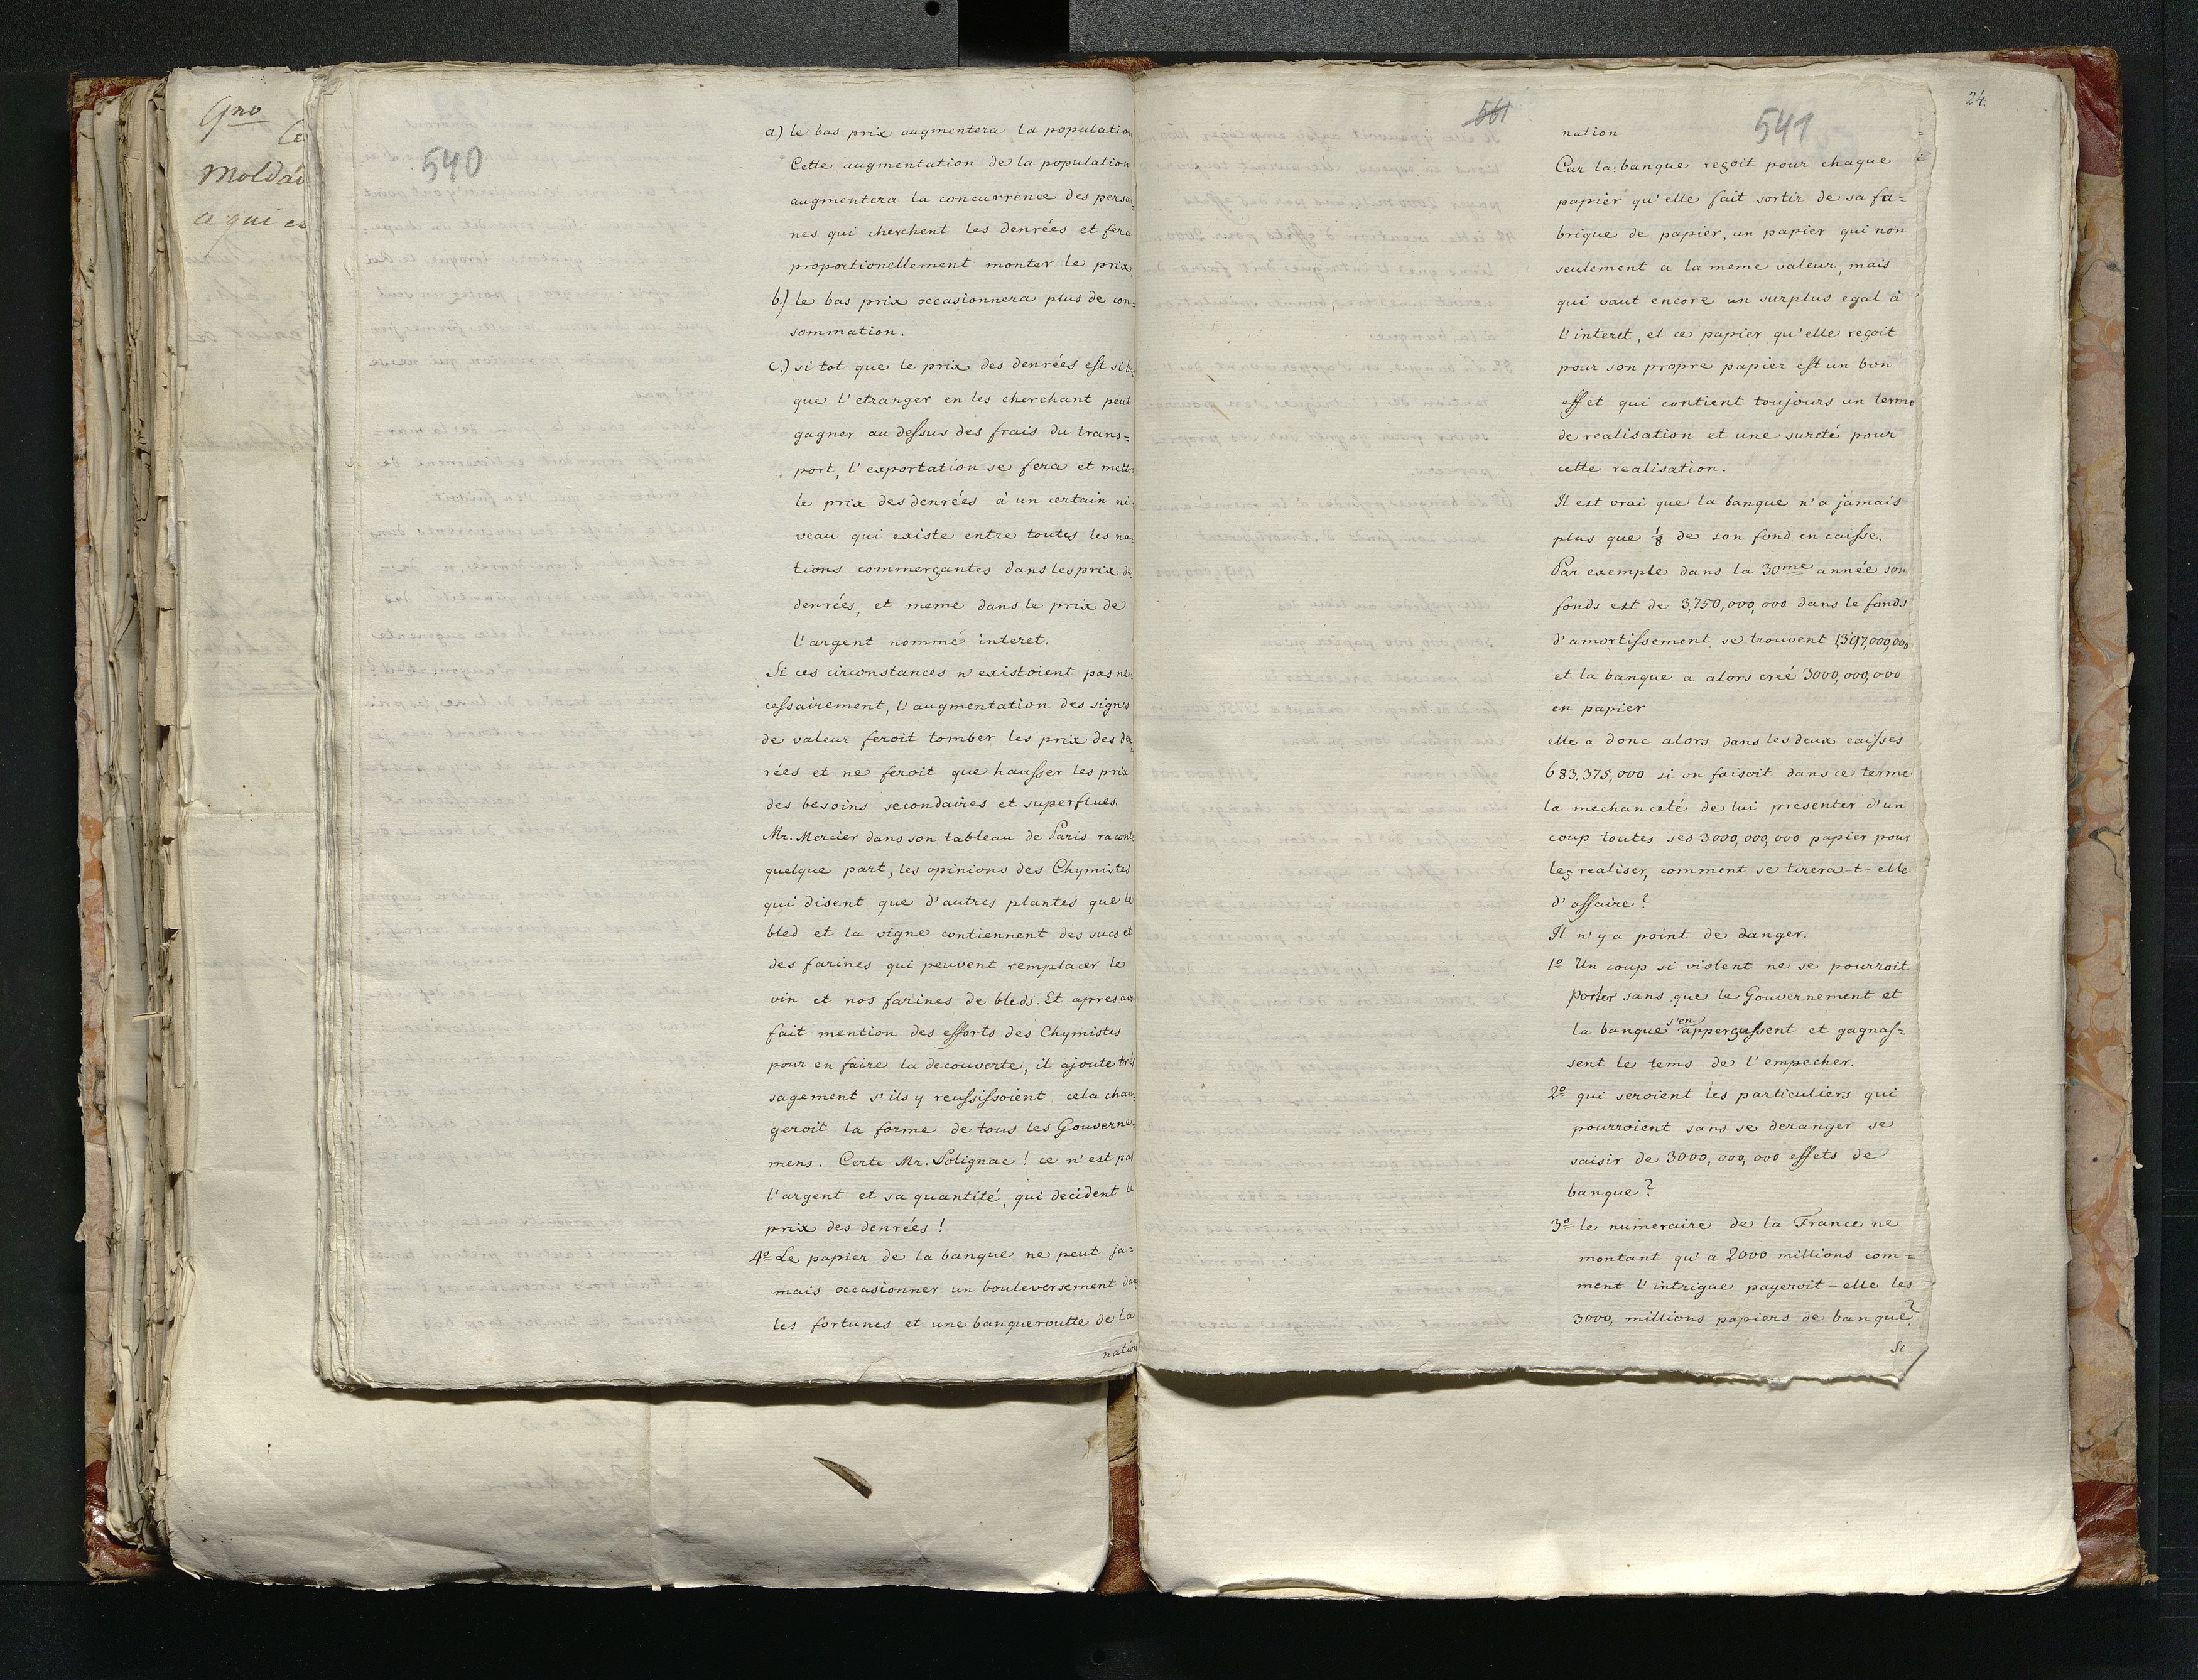 Gno
Ce
Moldav
ce qui es
540
a) le bas prix augmentera la population
Cette augmentation de la population
augmentera la concurrence des person=
nes qui cherchent les denrées et fera
proportionellement monter le prix
b.) le bas prix occasionnera plus de con=
sommation.
c.) si tot que le prix des denrées est si bas
que l'etranger en les cherchant peut
gagner au dessus des frais du trans=
port, l'exportation se fera et mettra
le prix des denrées à un certain ni=
veau qui existe entre toutes les na=
tions commerçantes dans les prix des
denrées, et meme dans le prix de
l'argent nommé interet.
Si ces circonstances n'existoient pas ne=
cessairement, l'augmentation des signes
de valeur feroit tomber les prix des den=
rées et ne feroit que hausser les prix
des besoins secondaires et superflues.
Mr. Mercier dans son tableau de Paris raconte
quelque part, les opinions des Chymistes
qui disent que d'autres plantes que le
bled et la vigne contiennent des sucs et
des farines qui peuvent remplacer le
vin et nos farines de bleds. Et apres avoir
fait mention des efforts des Chymistes
pour en faire la decouverte, il ajoute très
sagement s'ils y reussissoient cela chan=
geroit la forme de tous les Gouverne=
mens. Certe Mr. Polignac! ce n'est pas
l'argent et sa quantité, qui decident le
prix des denrées!
4º Le papier de la banque ne peut ja=
mais occasionner un bouleversement dans
les fortunes et une banqueroutte de la
nation
561
541
24.
nation
Car la banque reçoit pour chaque
papier qu'elle fait sortir de sa fa=
brique de papier, un papier qui non
seulement a la meme valeur, mais
qui vaut encore un surplus egal à
l'interet, et ce papier qu'elle reçoit
pour son propre papier est un bon
effet qui contient toujours un terme
de realisation et une sureté pour
cette realisation.
Il est vrai que la banque n'a jamais
plus que 1/8 de son fond en caisse.
Par exemple dans la 30me année son
fonds est de 3,750,000,000 dans le fonds
d'amortissement se trouvent 1,397,000,000
et la banque a alors creé 3000,000,000
en papier
elle a donc alors dans les deux caisses
683,375,000 si on faisoit dans ce terme
la mechanceté de lui presenter d'un
coup toutes ses 3000,000,000 papier pour
les realiser, comment se tirera-t-elle
d'affaire?
Il n'y a point de danger.
1º Un coup si violent ne se pourroit
porter sans que le Gouvernement et
la banque s'en apperçussent et gagnas=
sent le tems de l'empecher.
2º qui seroient les particuliers qui
pourroient sans se deranger se
saisir de 3000,000,000 effets de
banque?
3º le numeraire de la France ne
montant qu'a 2000 millions com=
ment l'intrigue payeroit-elle les
3000, millions papiers de banque?
Si